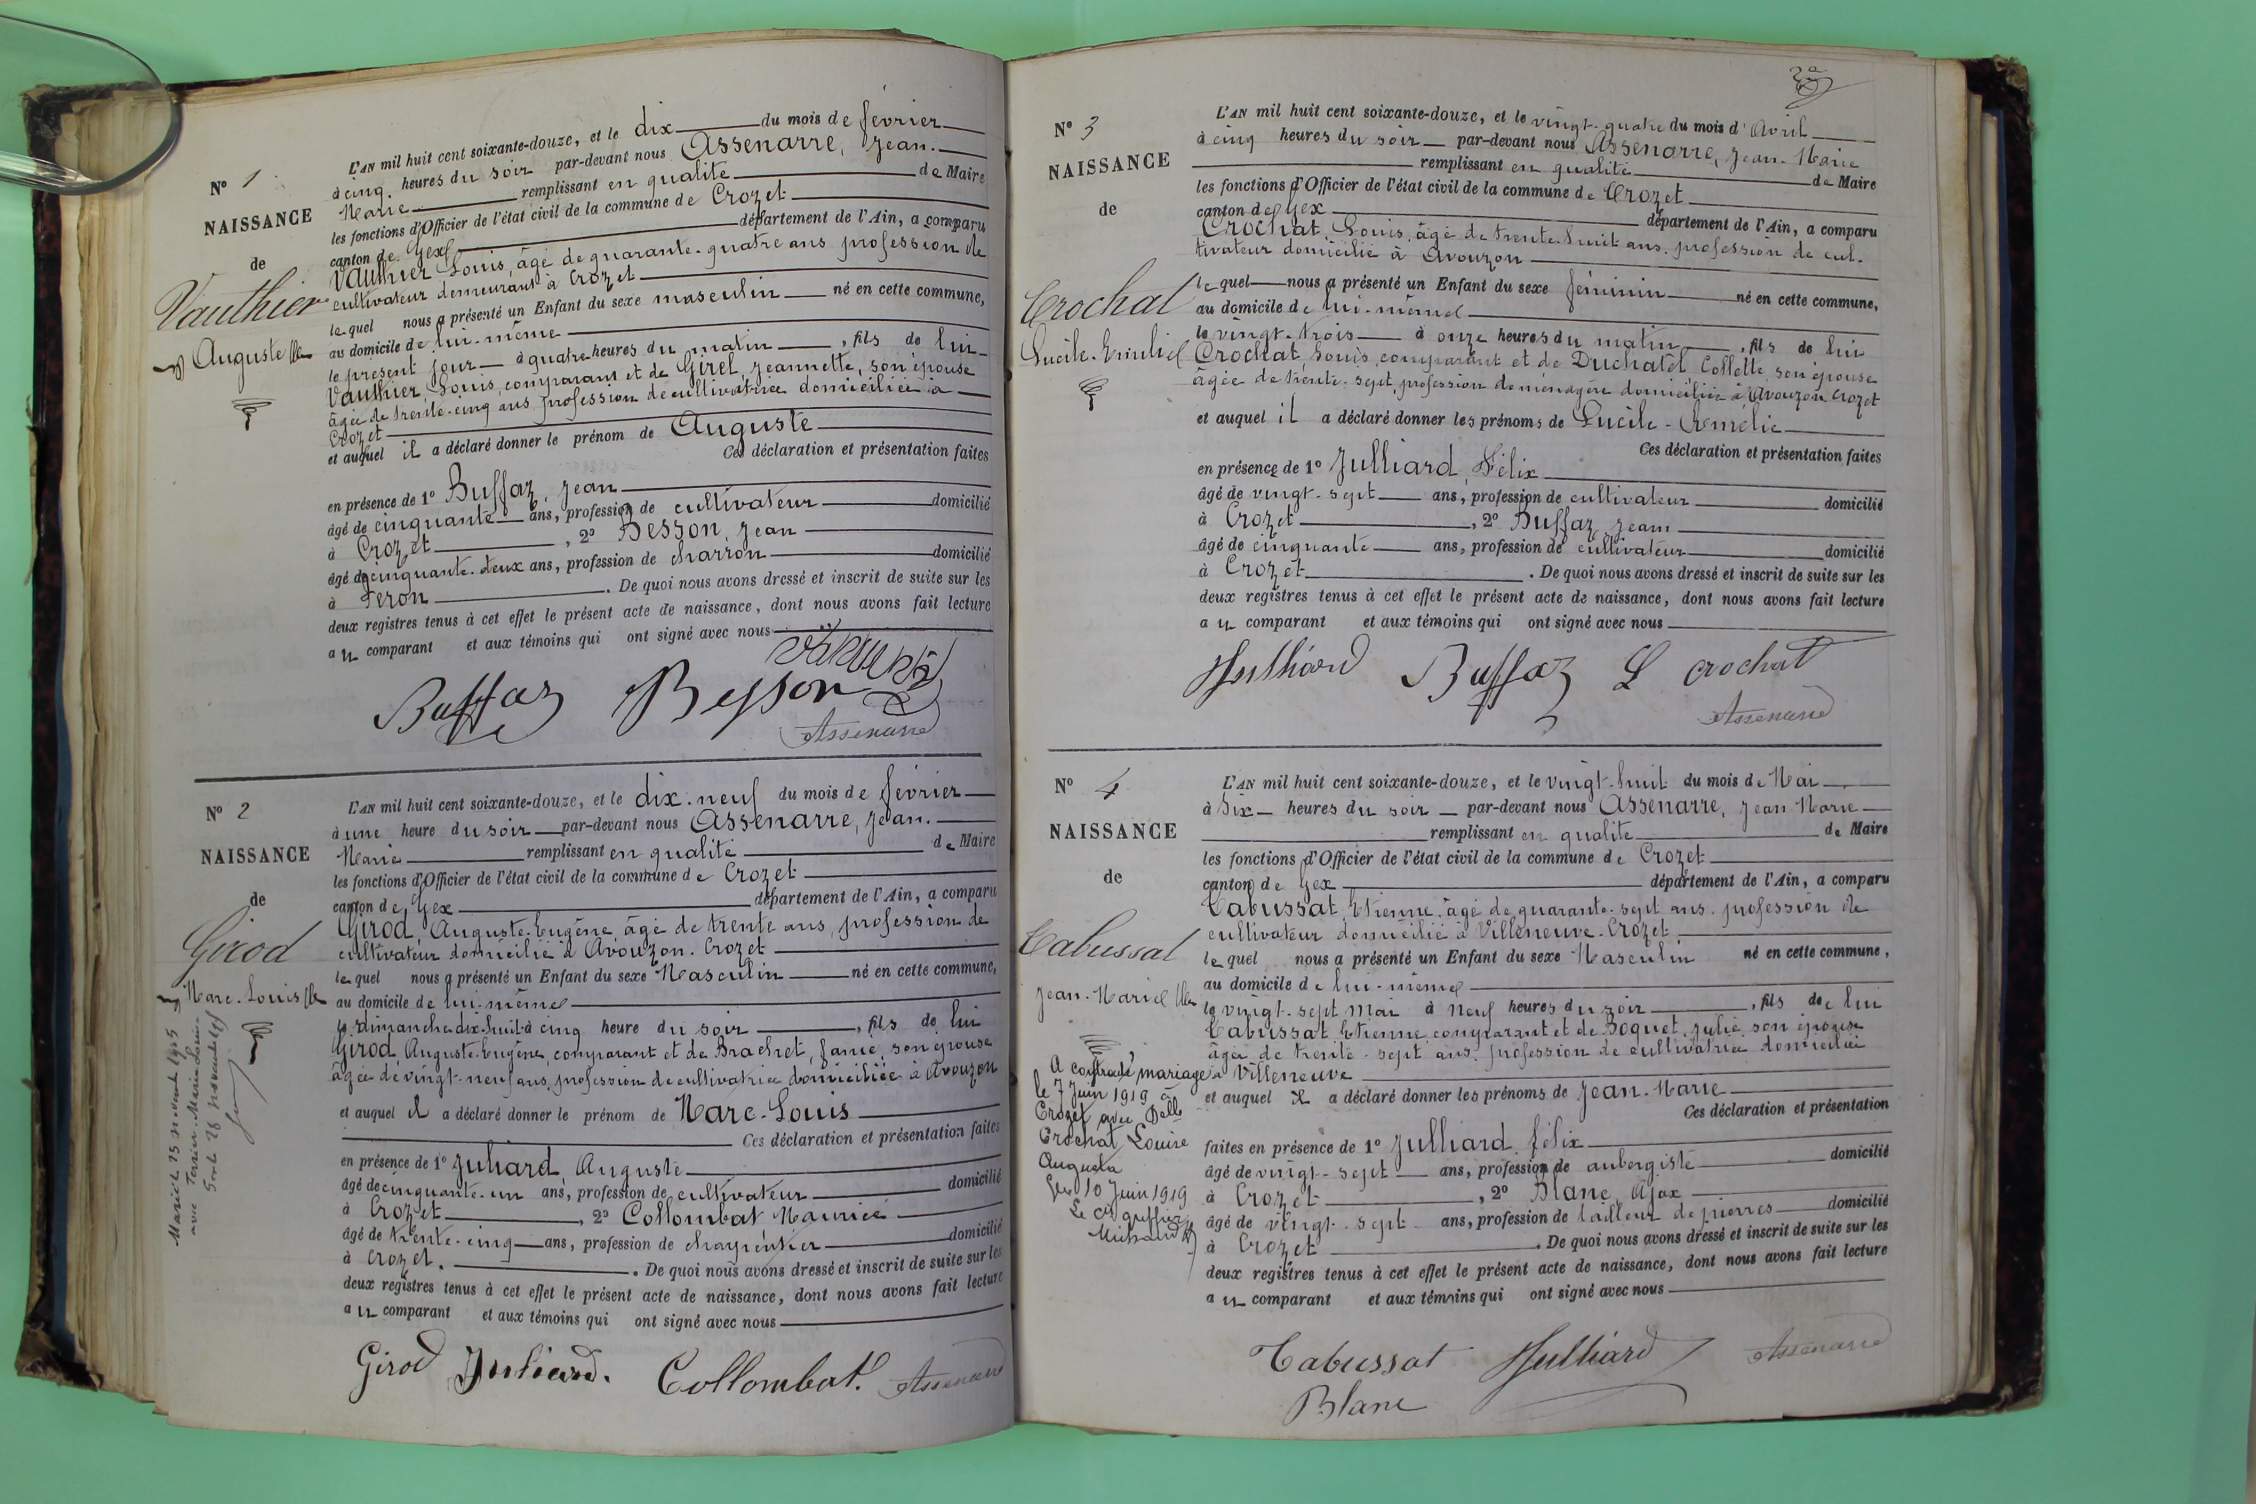 N° 1
NAISSANCE
de
Vauthier
Auguste
L'AN mil huit cent soixante-douze, et le dix du mois de février
à cinq heures du soir par-devant nous Assenarre, Jean-
Marie remplissant en qualité de Maire
les fonctions d'Officier de l'état civil de la commune de Crozet
canton de Gex département de l'Ain, a comparu
Vauthier Louis, âgé de quarante-quatre ans profession de
cultivateur demeurant à Crozet
lequel nous a présenté un Enfant du sexe masculin né en cette commune,
au domicile de lui-même
le présent jour à quatre heures du matin, fils de lui
Vauthier, Louis, comparant et de Girel, Jeannette, son épouse
âgée de trente-cinq ans profession de cultivatrice domiciliée à
Crozet
et auquel il a déclaré donner le prénom de Auguste
Ces déclaration et présentation faites
en présence de 1° Buffaz, Jean
âgé de cinquante ans, profession de cultivateur domicilié
à Crozet, 2° Besson, Jean
âgé de cinquante-deux ans, profession de charron domicilié
à Péron. De quoi nous avons dressé et inscrit de suite sur les
deux registres tenus à cet effet le présent acte de naissance, dont nous avons fait lecture
au comparant et aux témoins qui ont signé avec nous
Buffaz Besson
Assenarre
N° 2
NAISSANCE
de
Girod
Marc-Louis
Marié le 25 novembre 1925
avec Terrier Marie Louise
L'AN mil huit cent soixante-douze, et le dix-neuf du mois de février
à une heure du soir par-devant nous Assenarre, Jean-
Marie remplissant en qualité de Maire
les fonctions d'Officier de l'état civil de la commune de Crozet
canton de Gex département de l'Ain, a comparu
Girod, Auguste-Eugène, âgé de trente ans, profession de
cultivateur domicilié à Avouzon-Crozet
lequel nous a présenté un Enfant du sexe Masculin né en cette commune,
au domicile de lui-même
le dimanche dix-huit à cinq heure du soir, fils de lui
Girod, Auguste-Eugène, comparant et de Brachet, Fanie, son épouse
âgée de vingt-neuf ans, profession de cultivatrice domiciliée à Avouzon
et auquel il a déclaré donner le prénom de Marc-Louis
Ces déclaration et présentation faites
en présence de 1° Juliard, Auguste
âgé de cinquante-un ans, profession de cultivateur domicilié
à Crozet, 2° Collombat Maurice
âgé de trente-cinq ans, profession de charpentier domicilié
à Crozet. De quoi nous avons dressé et inscrit de suite sur les
deux registres tenus à cet effet le présent acte de naissance, dont nous avons fait lecture
au comparant et aux témoins qui ont signé avec nous
Girod Juliard. Collombat. Assenarre
N° 3
NAISSANCE
de
Crochat
Lucile-Emélie
L'AN mil huit cent soixante-douze, et le vingt-quatre du mois d'Avril
à cinq heures du soir par-devant nous Assenarre, Jean-Marie
remplissant en qualité de Maire
les fonctions d'Officier de l'état civil de la commune de Crozet
canton de Gex département de l'Ain, a comparu
Crochat, Louis, âgé de trente-huit ans, profession de cul-
tivateur domicilié à Avouzon
lequel nous a présenté un Enfant du sexe féminin né en cette commune,
au domicile de lui-même
le vingt-trois à onze heures du matin, fils de lui
Crochat, Louis, comparant et de Duchatel, Collette, son épouse
âgée de trente-sept, profession de ménagère domiciliée à Avouzon Crozet
et auquel il a déclaré donner les prénoms de Lucile-Emélie
Ces déclaration et présentation faites
en présence de 1° Julliard, Félix
âgé de vingt-sept ans, profession de cultivateur domicilié
à Crozet, 2° Buffaz, Jean
âgé de cinquante ans, profession de cultivateur domicilié
à Crozet. De quoi nous avons dressé et inscrit de suite sur les
deux registres tenus à cet effet le présent acte de naissance, dont nous avons fait lecture
au comparant et aux témoins qui ont signé avec nous
Julliard Buffaz L Crochat
Assenarre
N° 4
NAISSANCE
de
Tabussat
Jean-Marie
A contracté mariage
le 7 Juin 1919 à
Crozet avec Delle
Crochat Louise
Augusta
Gex 10 Juin 1919
Le greffier
L'AN mil huit cent soixante-douze, et le vingt-huit du mois de Mai
à six heures du soir par-devant nous Assenarre, Jean-Marie
remplissant en qualité de Maire
les fonctions d'Officier de l'état civil de la commune de Crozet
canton de Gex département de l'Ain, a comparu
Tabussat, Etienne, âgé de quarante-sept ans, profession de
cultivateur domicilié à Villeneuve-Crozet
lequel nous a présenté un Enfant du sexe Masculin né en cette commune,
au domicile de lui-même
le vingt-sept Mai à neuf heures du soir, fils de lui
Tabussat Etienne, comparant et de Boquet, Julie, son épouse
âgée de trente-sept ans, profession de cultivatrice domiciliée
à Villeneuve
et auquel il a déclaré donner les prénoms de Jean-Marie
Ces déclaration et présentation
faites en présence de 1° Julliard, félix
âgé de vingt-sept ans, profession de aubergiste domicilié
à Crozet, 2° Blanc, Ajax
âgé de vingt-sept ans, profession de tailleur de pierres domicilié
à Crozet. De quoi nous avons dressé et inscrit de suite sur les
deux registres tenus à cet effet le présent acte de naissance, dont nous avons fait lecture
au comparant et aux témoins qui ont signé avec nous
Tabussat Julliard Assenarre
Blanc